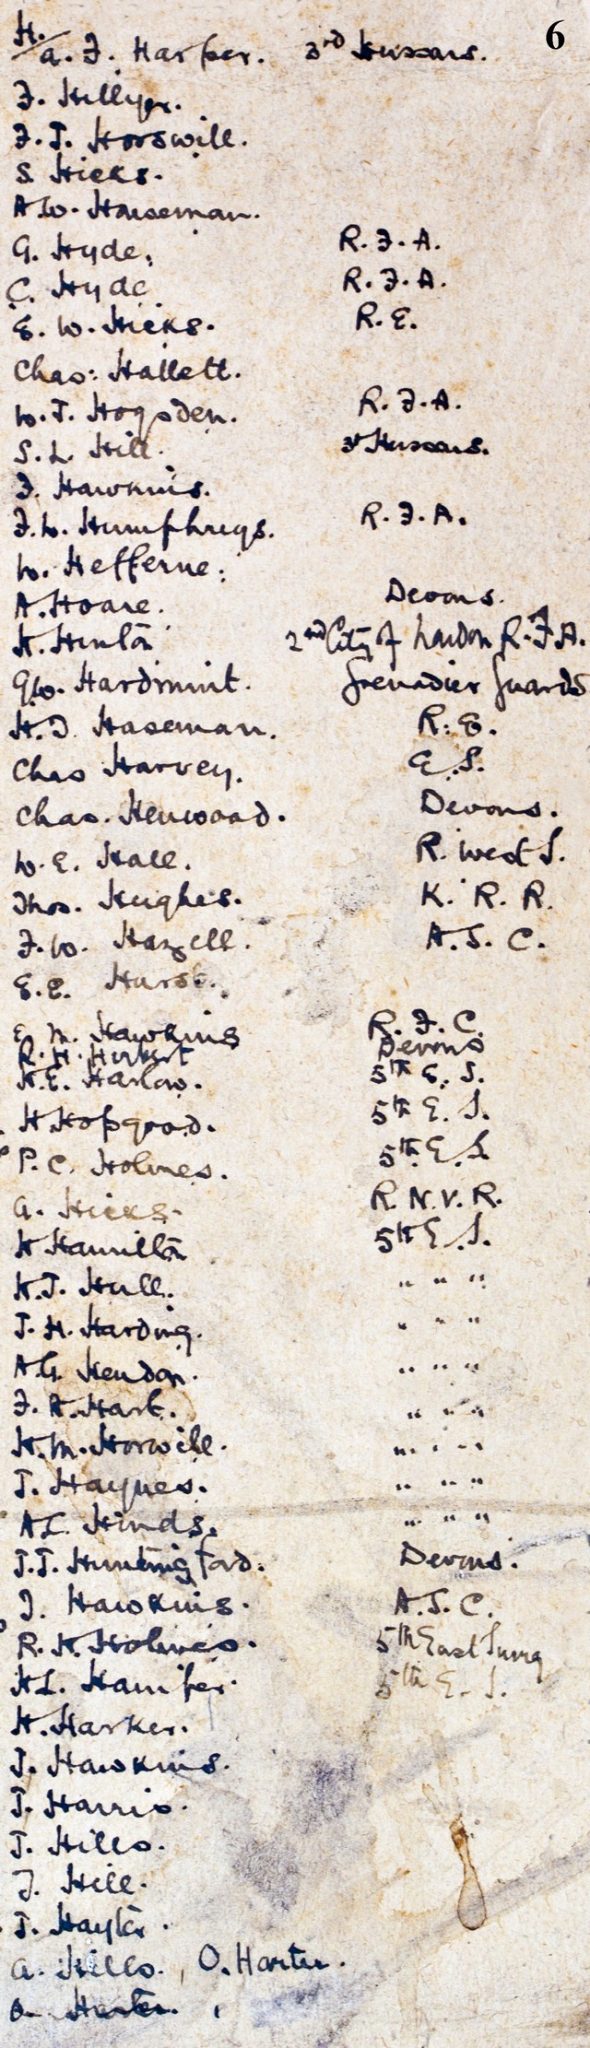 H.
6
A. F. Harper. 3rd Hussars.
F. Hillyer.
F. T. Horswill.
S. Hicks.
A. W. Houseman.
G. Hyde. R. F. A.
C. Hyde R. F. A.
E. W. Hicks. R. E.
Chas: Hallett.
W. T. Hogsden. R. F. A.
S. L. Hill. 3rd Hussars.
F. Hawkins.
F. W. Humphreys. R. F. A.
W. Hefferne.
A. Hoare. Devons.
H. Hinton 2nd City of London R. F. A.
G. W. Hardmint. Grenadier Guards
H. J. Haseman. R. E.
Chas Harvey. E. S.
Chas. Henwood. Devons.
W. E. Hall. R. West S.
Thos. Hughes. K. R. R.
F. W. Hazell. A. S. C.
E. E.
E. M. Hawkins R. F. C.
R. H. Devons
H. E. Harlow. 5th E. S.
H. Hopgood. 5th E. S.
P. C. Holmes. 5th E. S.
G. Hicks. R. N. V. R.
H Hamilton 5th E. S.
H. T. Hull. " " "
T. H. Harding. " " "
A. G. Hendon. " " "
F. A. Hart. " " "
H. M. Horwill. " " "
T. Haynes. " " "
A. L. Hinds. " " "
T. T. Huntingford. Devons.
J. Hawkins. A. S. C.
R. H. Holmes. 5th East Surrey
H. L. Hamper. 5th E. S.
H. Harker.
T. Hawkins.
T. Harris.
T. Hills.
J. Hill.
T. Hayter.
A. Hills. , O. Harter.